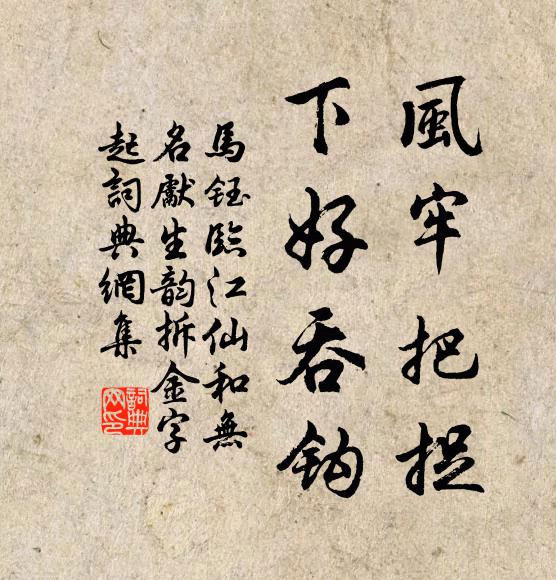 風牢把捉
下好吞鈎
馬鈺臨江仙和無
名獻生韵拆金字
起詞典網集
詞典網印